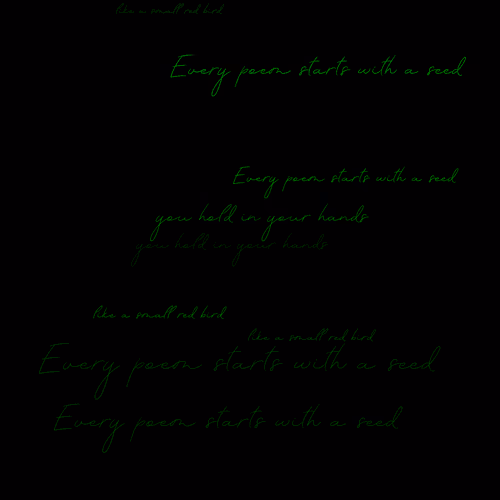 like a small red bird
Every poem starts with a seed
Every poem starts with a seed
you hold in your hands
you hold in your hands
like a small red bird
like a small red bird
Every poem starts with a seed
Every poem starts with a seed